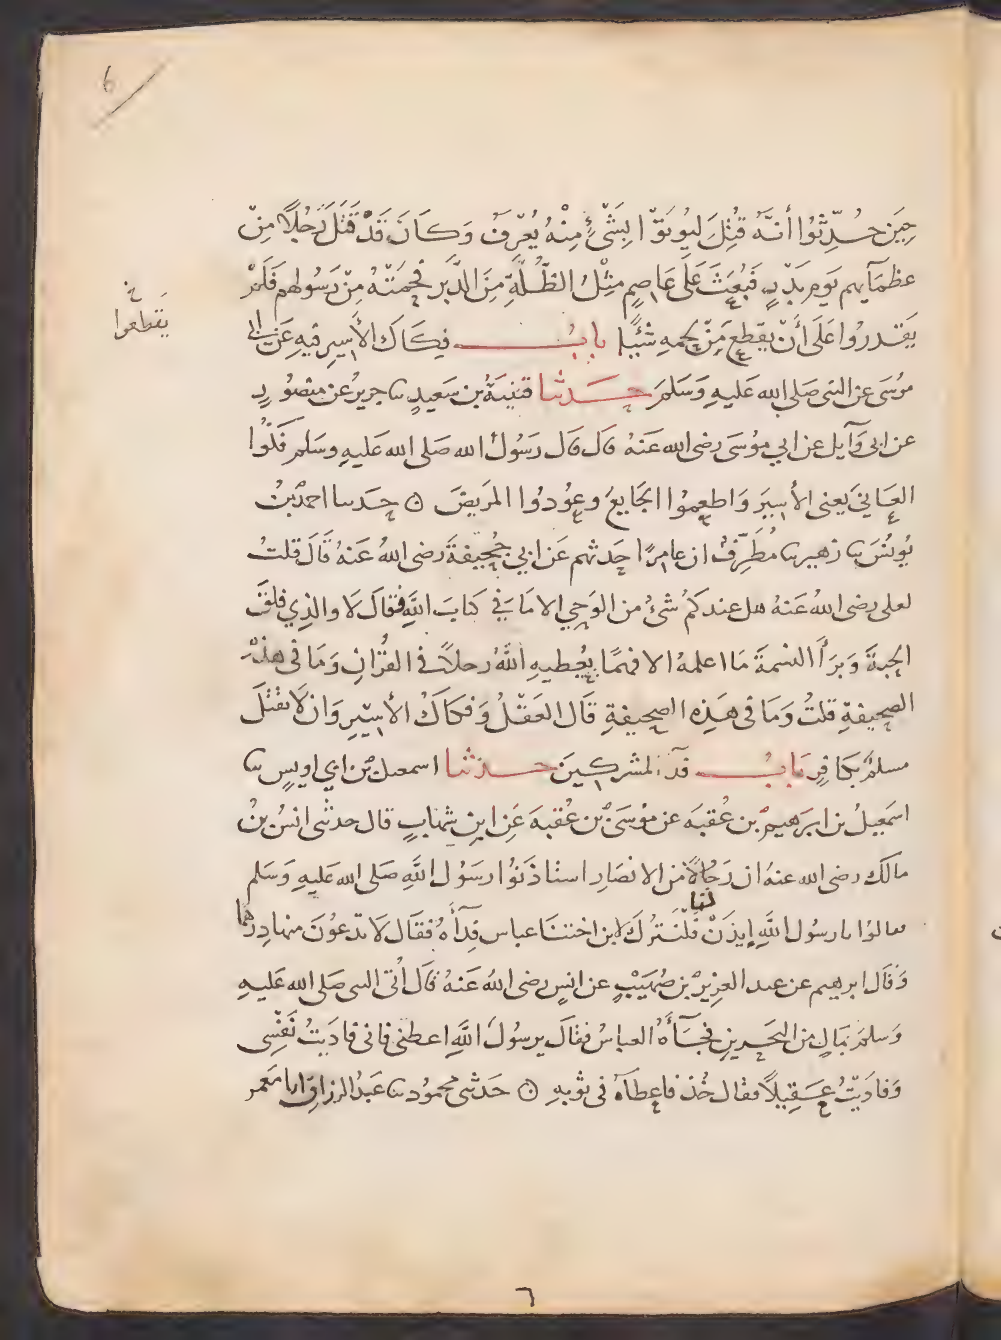 6
حِينَ حُدِّثُوا أَنَّهُ قُتِلَ لِيُوتَوْا بِشَيْءٍ مِنْهُ يُعْرَفُ وَكَانَ قَدْ قَتَلَ رَجُلًا مِنْ
عظمَآيهم يَوم بَدْرٍ فَبُعِثَ عَلَى عَاصِمٍ مِثْلُ الظُّلَّةِ مِنَ الدَّبْرِ فحَمَتْهُ مِنْ رَسُولهم فَلَمْ
يَقدرُوا عَلَى أَنْ يقطع مِنْ لحمهِ شَيْئًا بابُ فِكَاك الأَسِيرِ فيهِ عَن ابي
يَقطعوا خ
مُوسَى عن النبي صَلى الله عَليهِ وَسَلمَ حَدثنا قتيبَةُ بن سَعِيدٍ نا جريرٌ عن منصُورٍ
عن ابي وَآيل عن ابي مُوسَى رضي الله عَنهُ قال قال رَسُولُ الله صَلى الله عَليهِ وسَلم فكُّوا
العَاني يَعني الأَسِيرَ وَاطعِمُوا الجَايعَ وعُودُوا المَريضَ ۞ حَدسا احمدُ بنُ
يُونُسَ نا زهير نا مُطَرِّفٌ ان عامرًا حَدثهم عَن ابي جُحَيفةَ رضي اللهُ عَنهُ قَالَ قلتُ
لعلى رضي اللهُ عَنهُ هل عندكمُ شئٌ من الوَحيِ الا مَا في كتابَ اللَّهِ فقالَ لا والذِي فلقَ
الحبةَ وَبَرَأَ النسمةَ مَا اعلمهُ الا فهمًا يُعْطيهِ اللهُ رجلاً في القُرْانِ وَمَا فى هَذِهِ
الصحيفةِ قلتُ وَمَا فى هَذِهِ الصحِيفةِ قَال العَقْلُ وَفكاكُ الأسِيْرِ وَان لَا يقتَلَ
مسلمٌ بكافِرٍ بَابُ فدآء المشركِينَ حدثنا اسمعيل بن ابي اويسٍ نا
اسمَعِيلُ بن ابرَهيمَ بن عُقبَة عن مُوسَىَ بْن عُقبةَ عَنِ ابنِ شهَابٍ قال حدثني انسُ بْنُ
مالك رضي الله عنهُ ان رَجُالاً من الانصَارِ استاذنُوا رسُول اللَّهِ صَلى الله عَليهِ وَسَلم
فقالوُا يا رسُول اللَّهِ إيذَنْ لنا فلْنَترُكْ لابن اختنَا عباس فِدآهُ فقَال لا تدعُونَ منها دِرهَما
وَقَال ابرهيم عن عبد العزِيز بن صُهَيْبٍ عن انسٍ رضي اللهُ عَنهُ قَال أُتى النبى صَلى الله عَليهِ
وَسلمَ بمَالٍ من البَحَرينِ فجَآءَهُ العباسُ فقَالَ يرسُولَ اللَّهِ اعطني فانى فادَيتُ نَفْسِى
وَفادَيتُ عَقِيلًا فقال خُذ فاعطَاهُ فى ثوبهِ ۞ حَدثنى محمود نا عبدُ الرزاقِ انا مَعمر
٦